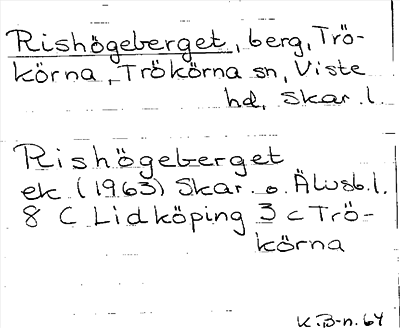 Rishögeberget, berg, Trö-
körna, Trökörna sn, Viste
hd, Skar. l.
Rishögeberget
ek (1963) Skar. o. Älvsb. l.
8 C Lidköping 3 c Trö-
körna
K.B-n. 64